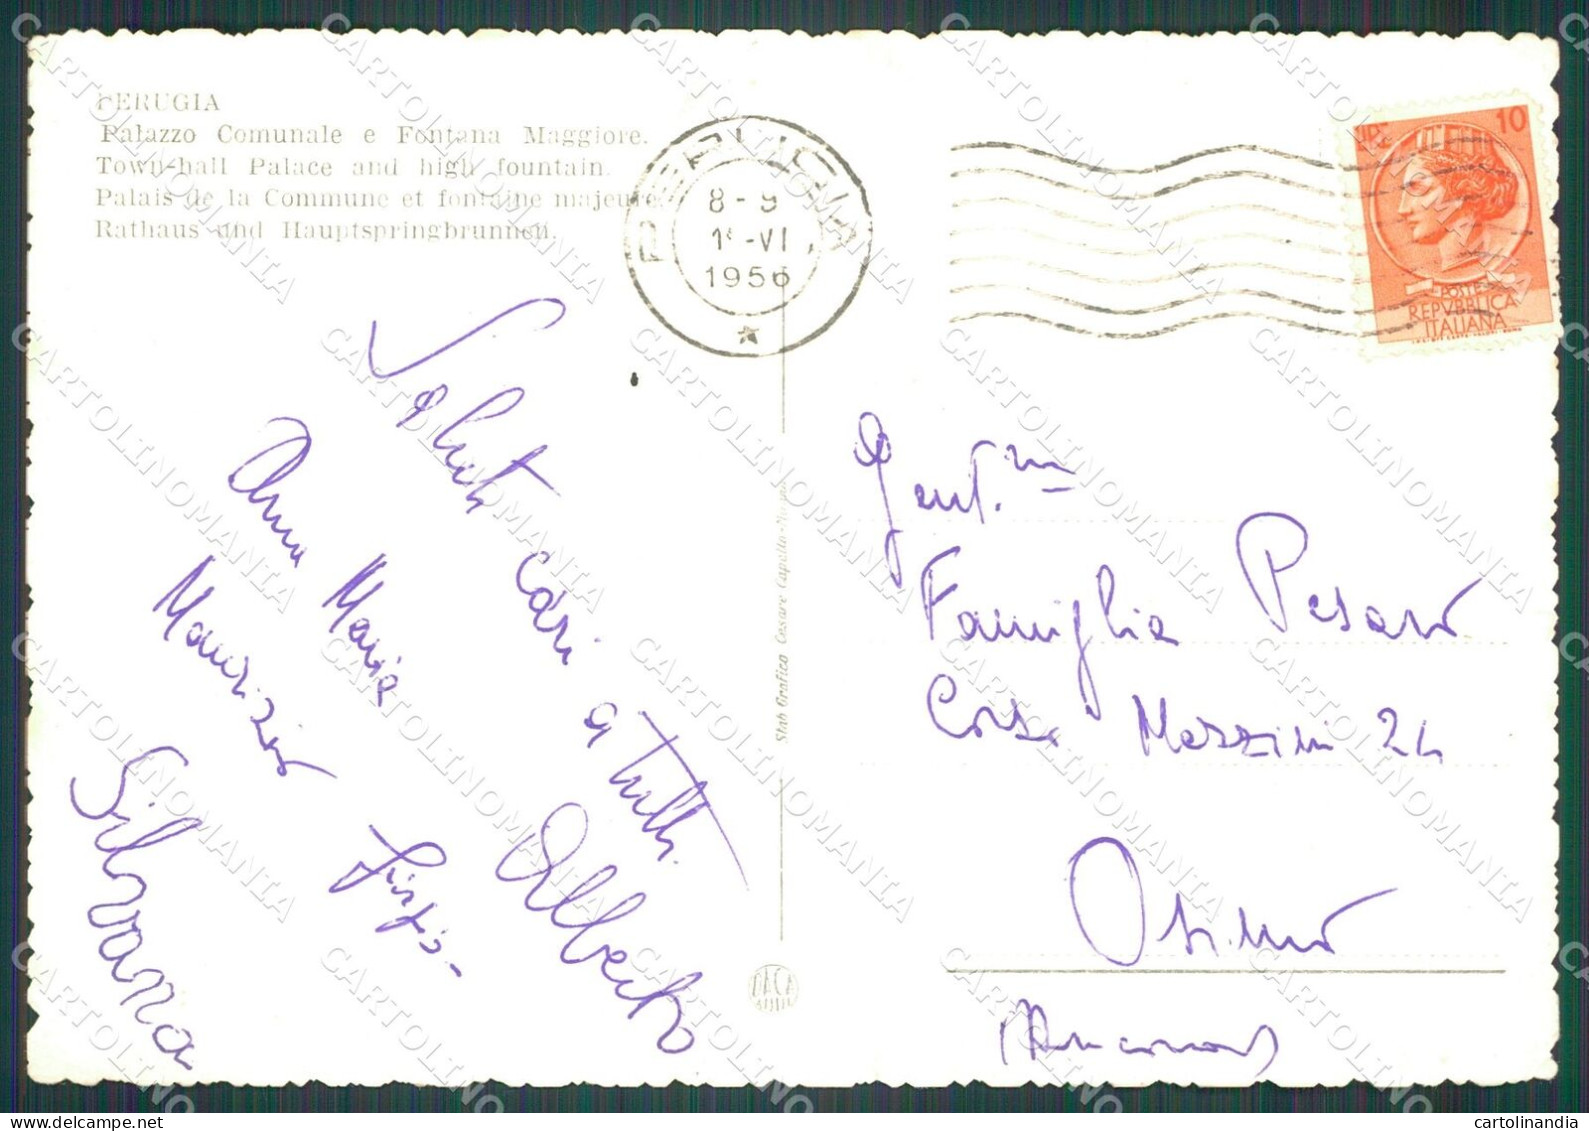 PERUGIA
Palazzo Comunale e Fontana Maggiore.
Town-hall Palace and high fountain.
Palais de la Commune et fontaine majeure.
Rathaus und Hauptspringbrunnen.
PERUGIA
8-9
-VI
1956
10
POSTE
REPVBBLICA
ITALIANA
Saluti cari a tutti
Anna Maria Alberto
Maurizio
Silvana
Gent.ma
Famiglia Pesaro
Corso Mazzini 24
Osimo
(Ancona)
Stab Grafico Cesare Capello-
DACA
CARTOLINOMANIA
cartolinandia